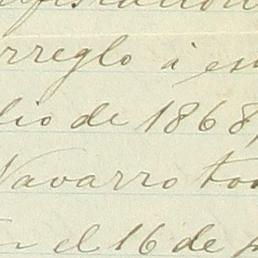 rreglo á es
lio de 1868,
Navarro to
n el 16 de